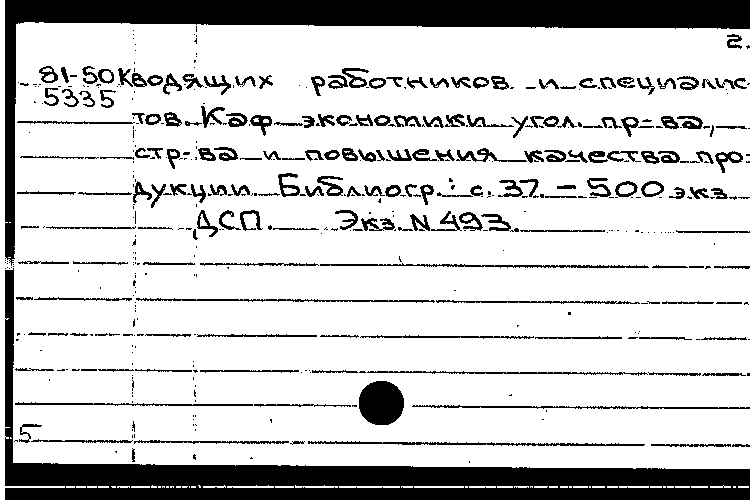 2.
81-50К водящих работников и специалис
5335
тов. Каф. экономики угол. пр-ва,
стр-ва и повышения качества про-
дукции. Библиогр.: с. 37. – 500 экз.
ДСП. Экз. N 493.
5